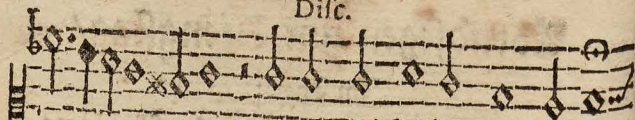 Diſc.